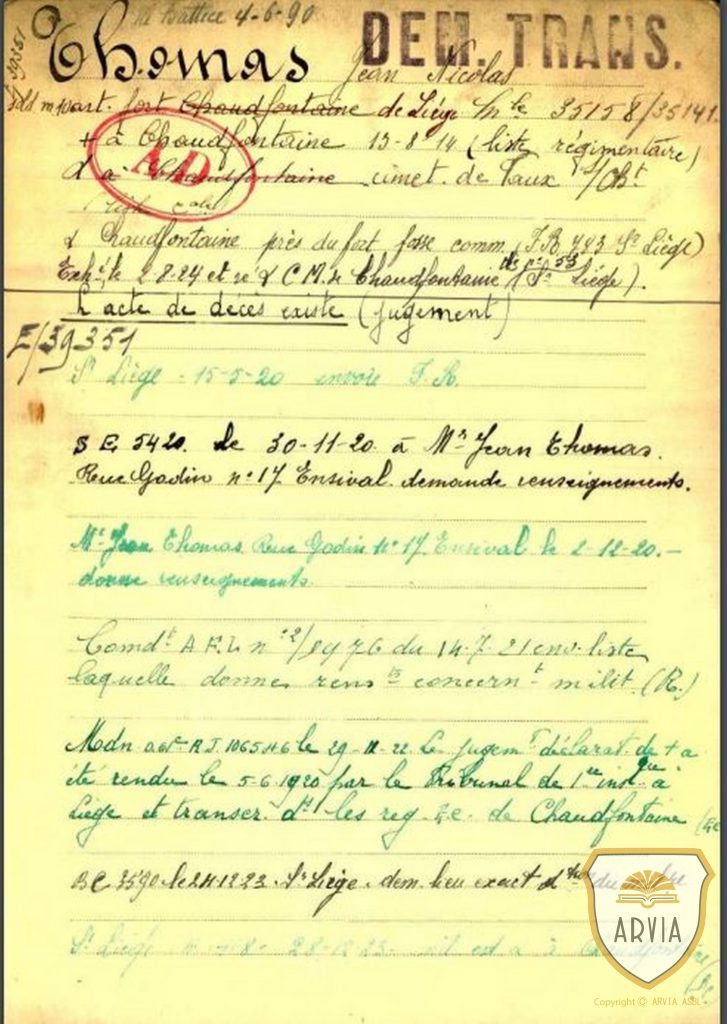 né Battice 4-6-90
DEM. TRANS.
39351
Thomas Jean Nicolas
fort Chaudfontaine de Liège Mle 35158/35141
+ à Chaudfontaine 13-8-14 (liste régimentaire)
AD
à Chaudfontaine cimet. de Vaux s/Cht
Chaudfontaine près du fort fosse comm. (F.R. 793 St Liège)
Exhé le 2-8-24 et ré C.M. de Chaudfontaine (St Liège).
L'acte de décès existe (jugement)
E/39351
St Liège - 15-5-20 envoie F.R.
S E 5420. le 30-11-20. à Mr Jean Thomas.
Rue Godin n° 17 Ensival. demande renseignements.
Mr Jean Thomas Rue Godin n° 17 Ensival le 2-12-20. -
donne renseignements.
Comdt A.F.L n° 2/1976 du 14-7-21 env. liste
laquelle donne rensts concernt milit. (R.)
Mdn le 29-11-22. Le jugemt déclarat. de + a
été rendu le 5-6-1920 par le Tribunal de 1re inst à
Liège et transcr. ds les reg. E.C. de Chaudfontaine
BC 3590 le 24-12-23. St Liège. dem. lieu exact
St Liège 28-12-23
ARVIA
Copyright © ARVIA ASBL